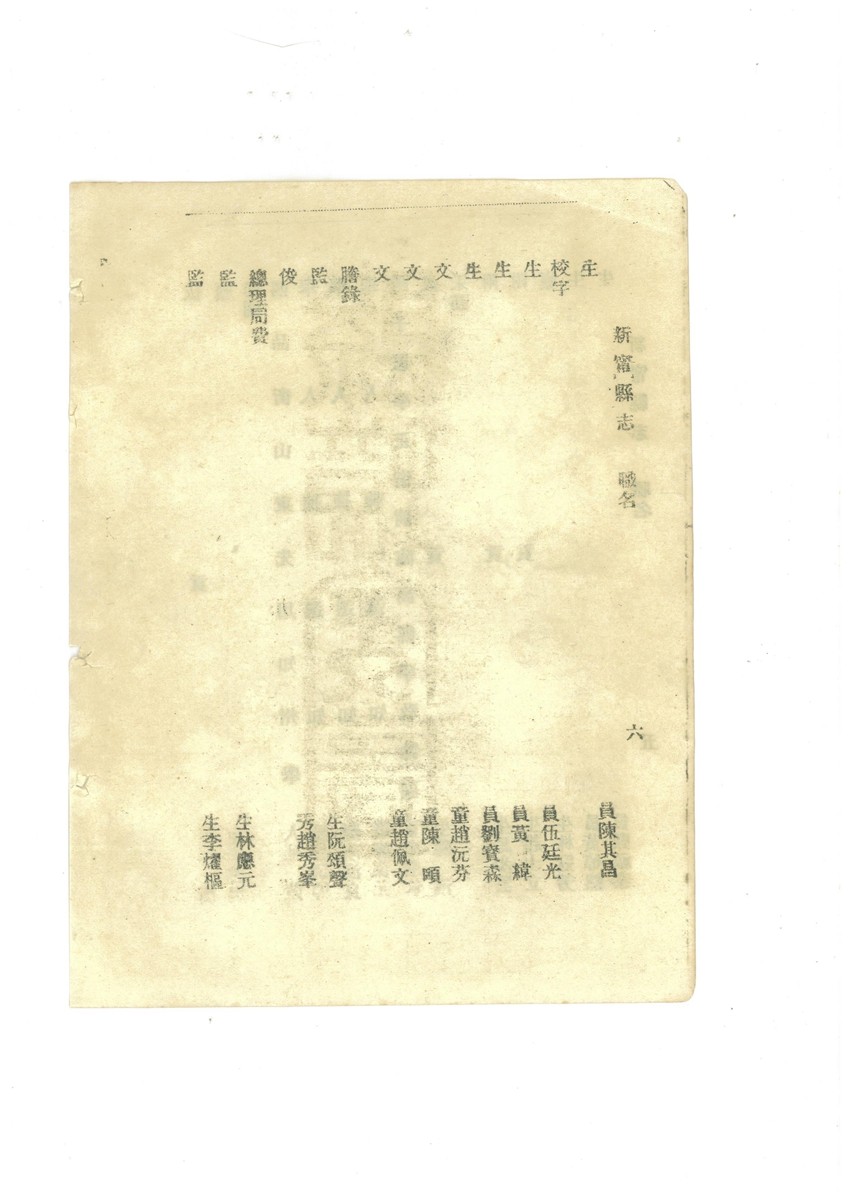 新甯縣志 職名 六
生 員陳其昌
校字
生 員伍廷光
生 員黃 緯
生 員劉寶森
文 童趙沅芬
文 童陳 頤
文 童趙佩文
謄錄
監 生阮頌聲
俊 秀趙秀峯
總理局費
監 生林應元
監 生李燿樞